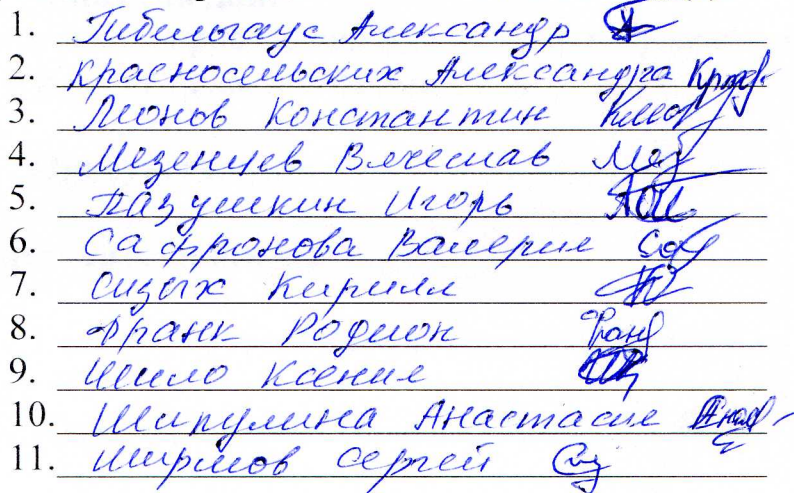 1. Гибельгаус Александр
2. Красносельских Александра
3. Леонов Константин
4. Мезенцев Вячеслав
5. Пазушкин Игорь
6. Сафронова Валерия
7. Сизых Кирилл
8. Франк Родион
9. Шило Ксения
10. Шипулина Анастасия
11. Ширмов Сергей